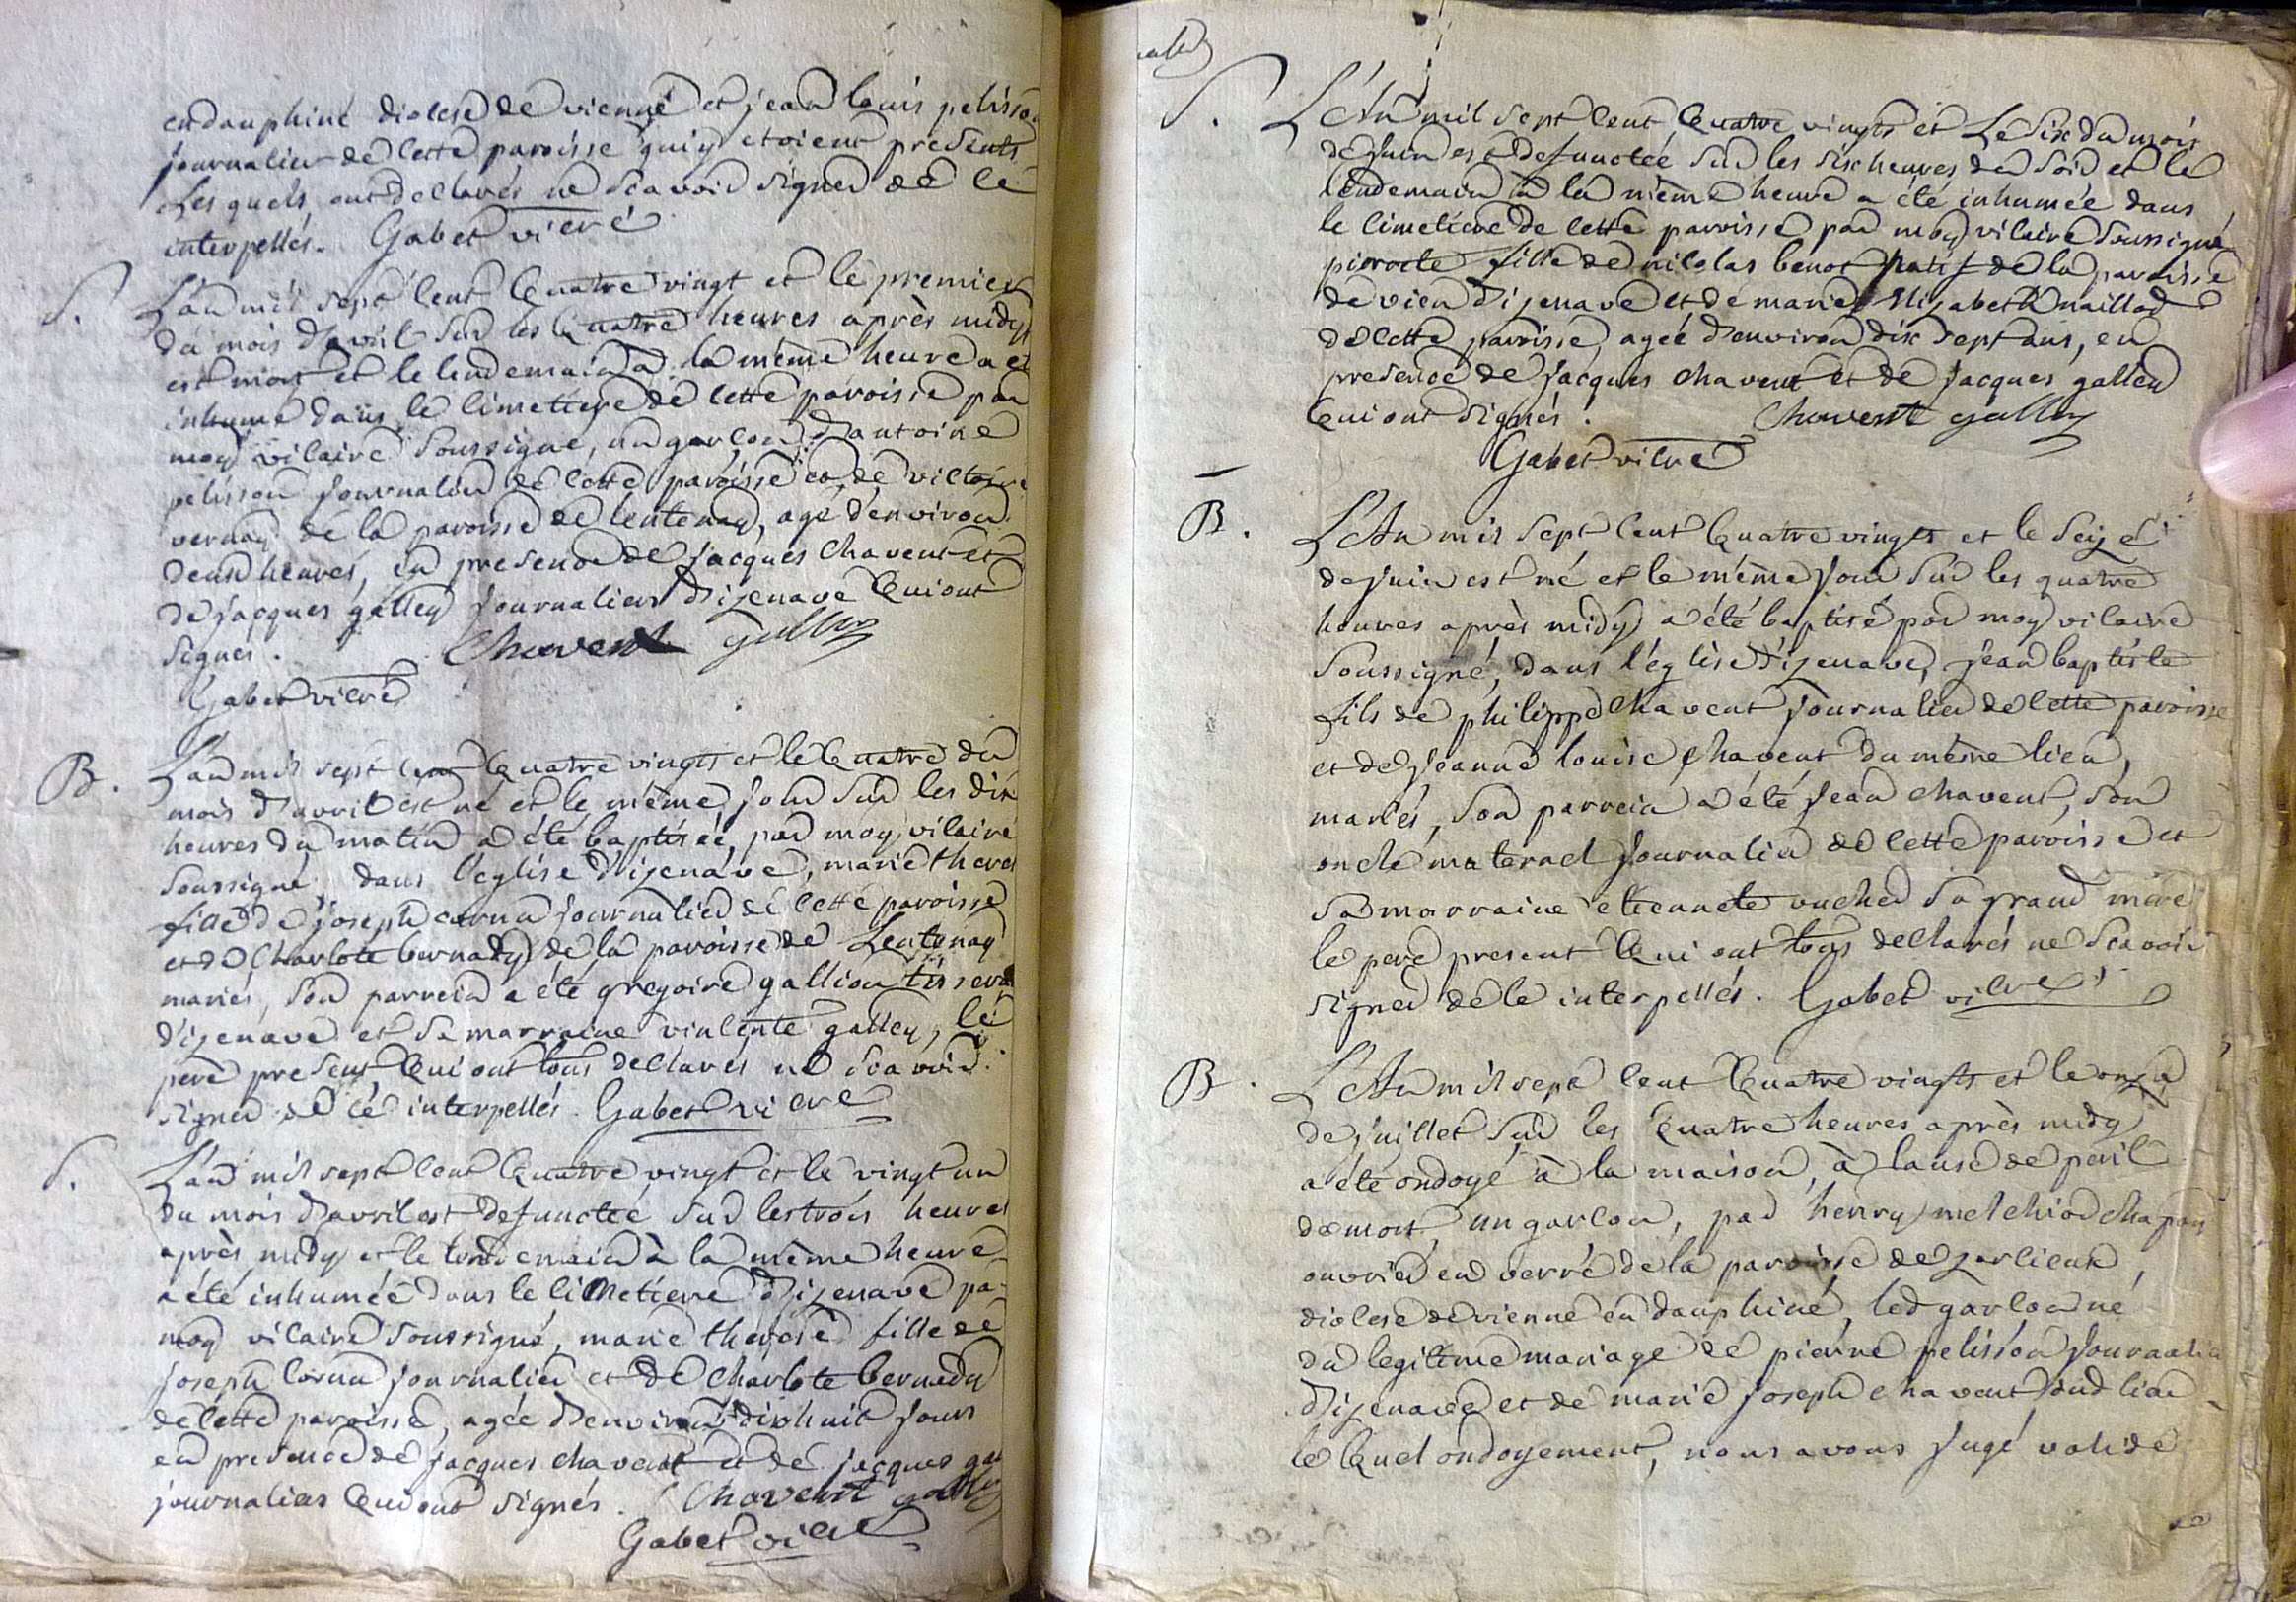 endauphiné diocese de vienne et jean louis pelisson
journalier de cette paroisse qui y etoient presents
Les quels ont declarés ne scavoir signer de ce
interpellés. Gabet vicre
S. L'an mil sept cent quatre vingt et le premier
du mois d'avril sur les quatre heures après midy
est mort et le lendemain a la même heure a eté
inhumé dans le cimetiere de cette paroisse par
moy vicaire soussigné, un garçon d'antoine
pelisson journalier de cette paroisse et de victoire
vernay de la paroisse de lentenay, agé d'environ
deux heures, en presence de jacques chavent et
de jacques galley journaliers d'izenave qui ont
signés. Chavent galley
Gabet vicre
B. L'an mil sept cent quatre vingts et le quatre du
mois d'avril est né et le même jour sur les dix
heures du matin a été baptisée, par moy vicaire
soussigné, dans l'eglise d'izenave, marie there
fille de joseph cornu journalier de cette paroisse
et de Charlote bernady de la paroisse de Lentenay
mariés, son parrein a été gregoire gallion tissera
d'izenave et sa marraine vincente galley, le
pere present qui ont tous declarés ne scavoir
signer de ce interpellés. Gabet vicre
S. L'an mil sept cent quatre vingt et le vingt un
du mois d'avril est defunctée sur les trois heures
après midy et le lendemain à la même heure
a été inhumée dans le cimetiere d'izenave pa
moy vicaire soussigné, marie therese fille de
joseph cornu journalier et de charlote bernady
de cette paroisse, agée d'environ dixhuit jours
en presence de jacques chavent et de jacques gal
journaliers qui ont signés. Chavent galley
Gabet vicre
S. L'An mil sept cent quatre vingts et Le six du mois
de juin est defunctée sur les six heures du soir et le
lendemain à la même heure a été inhumée dans
le cimetiere de cette paroisse par moy vicaire soussigné
pierrete fille de nicolas benot natif de la paroisse
de vieu d'izenave et de marie Elizabeth maillod
de cette paroisse, agée d'environ dix sept ans, en
presence de jacques chavent et de jacques galley
qui ont signés. Chavent galley
Gabet vicre
B. L'An mil sept cent quatre vingts et le seize
de juin est né et le même jour sur les quatre
heures après midy a été baptisé par moy vicaire
soussigné, dans l'eglise d'izenave, jean baptiste
fils de philippe chavent journalier de cette paroisse
et de jeanne louise chavent du même lieu,
mariés, son parrein a été jean chavent, son
oncle maternel journalier de cette paroisse et
sa marraine etiennete sa grand mere
le pere present qui ont tous declarés ne scavoir
signer de ce interpellés. Gabet vicre
B. L'An mil sept cent quatre vingts et le onze
de juillet sur les quatre heures après midy
a été ondoyé à la maison, à cause de peril
de mort, un garçon, par henry melchior chapuy
ouvrier en verre de la paroisse de
diocese de vienne en dauphiné, led garçon né
du legitime mariage de pierre pelisson journalier
d'izenave et de marie joseph chavent dud lieu
le quel ondoyement, nous avons jugé valide